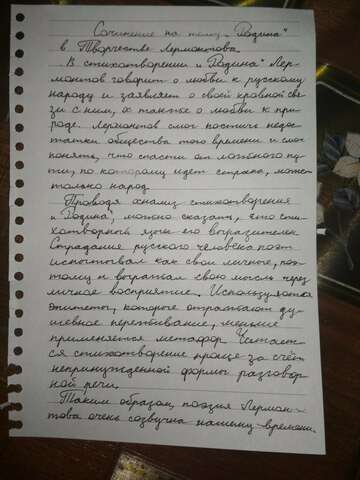 Сочинение на тему „Родина“
в Творчестве Лермонтова.
В стихотворении „Родина“ Лер-
монтов говорит о любви к русскому
народу и заявляет о своей кровной свя-
зи с ним, а также о любви к при-
роде. Лермонтов смог постичь недос-
татки общества того времени и смог
понять, что спасти от ложного пу-
ти, по которому идет страна, может
только народ.
Проводя анализ стихотворения
„Родина“, можно сказать, что сти-
хотворный язык его выразителен.
Страдание русского человека поэт
испытывал как свои личные, поэ-
тому и выражал свою мысль через
личное восприятие. Используются
эпитеты, которые отражают ду-
шевное переживание, меньше
применяется метафор. Читает-
ся стихотворение проще за счёт
непринужденной формы разговор
ной речи.
Таким образом, поэзия Лермон-
това очень созвучна нашему времени.